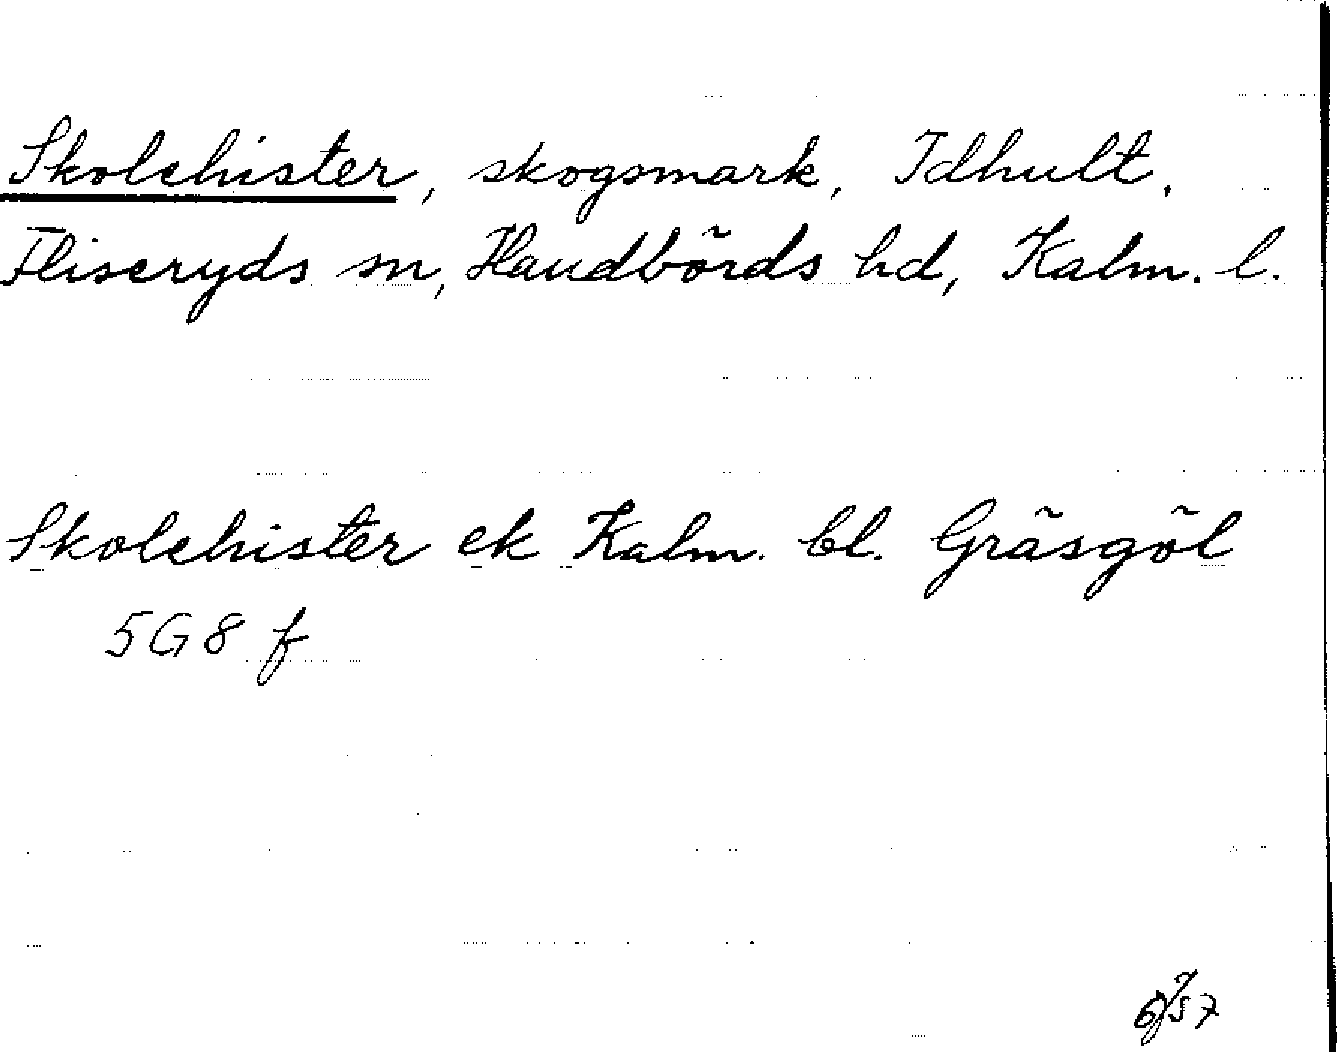 Skolehister, skogsmark, Idhult.
Fliseryds sn, Handbörds hd, Kalm. l.
Skolehister ek Kalm. bl. Gräsgöl
5G8 f